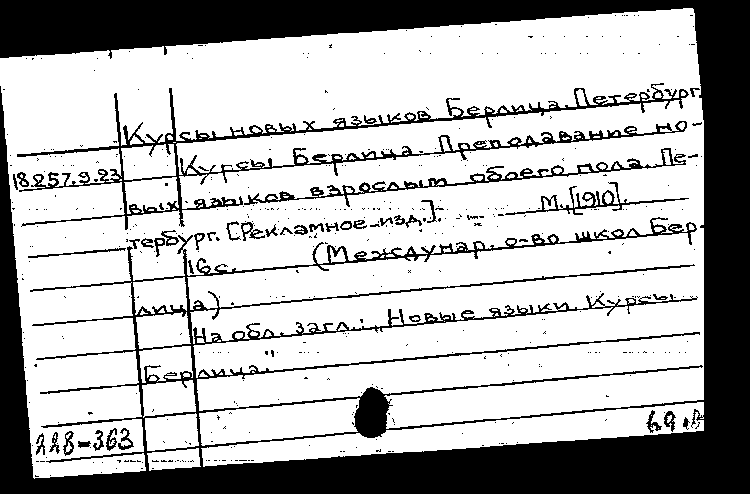 Курсы новых языков Берлица. Петербург.
18.257.9.23
Курсы Берлица. Преподавание но-
вых языков взрослым обоего пола. Пе-
тербург. [Рекламное изд.]. М., [1910].
16 с. (Междунар. о-во школ Бер-
лица).
На обл. загл.: „Новые языки. Курсы
Берлица."
228-363